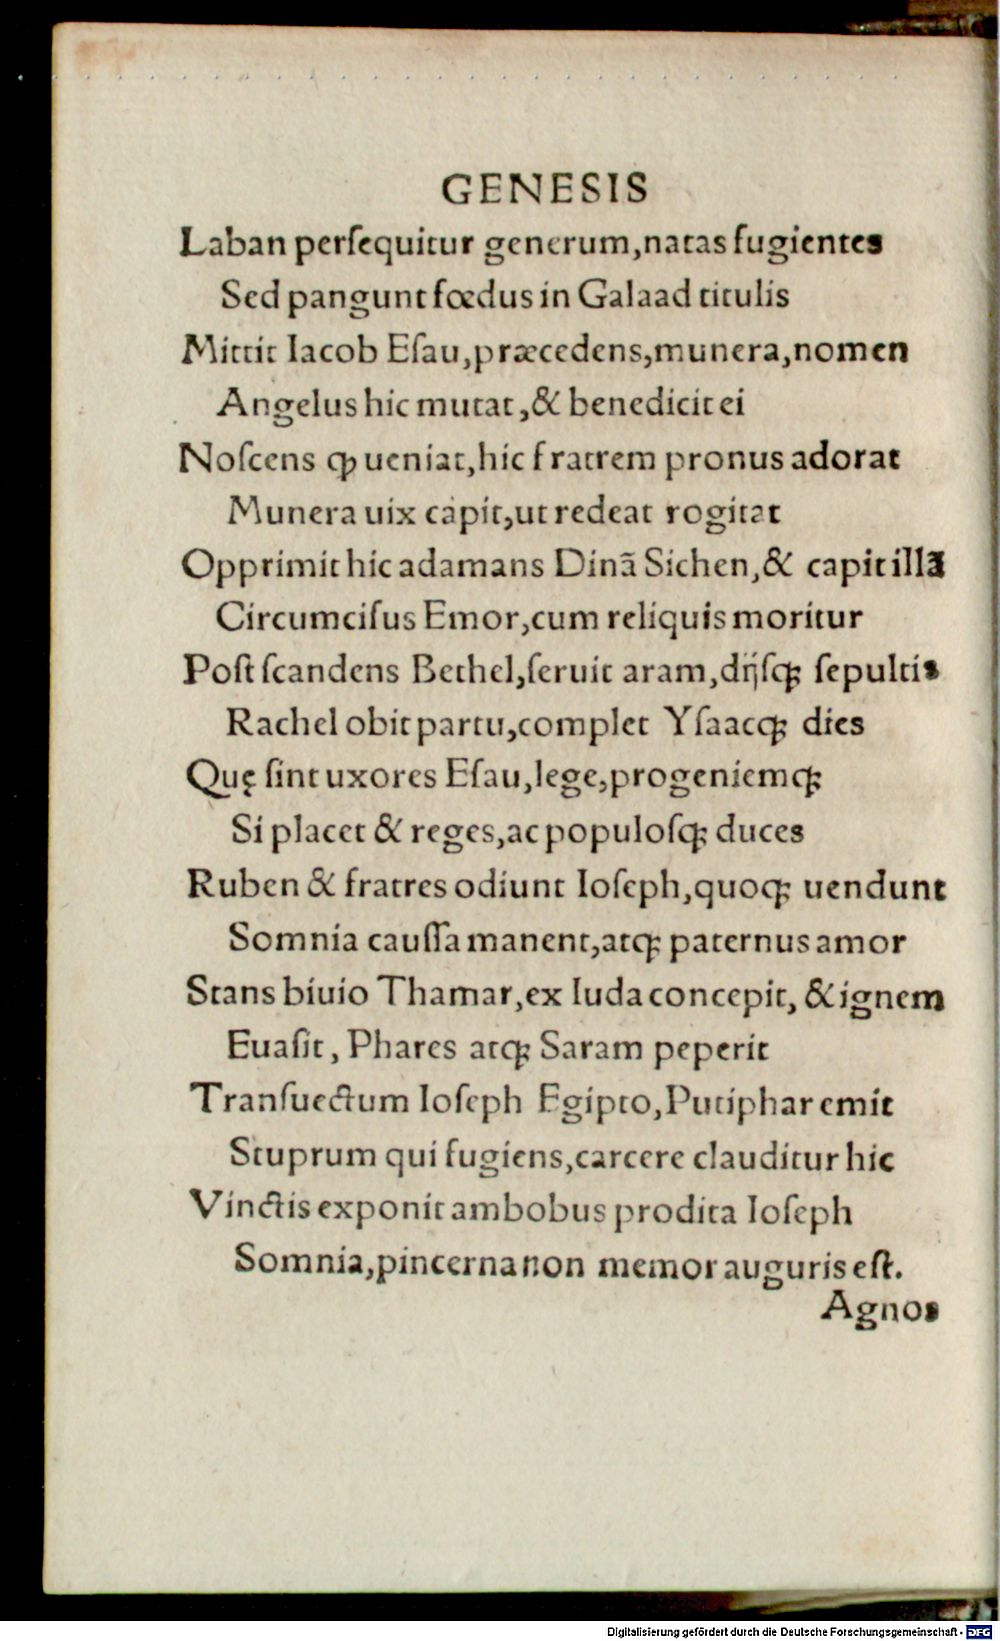 GENESIS
Laban perſequitur generum,natas fugientes
Sed pangunt fœdus in Galaad titulis
Mittit Iacob Eſau,præcedens,munera,nomen
Angelus hic mutat,& benedicit ei
Noſcens ꝙ ueniat,hic fratrem pronus adorat
Munera uix capit,ut redeat rogitat
Opprimit hic adamans Dinã Sichen,& capit illã
Circumciſus Emor,cum reliquis moritur
Poſt ſcandens Bethel,ſeruit aram,dijſqꝫ ſepultis
Rachel obit partu,complet Yſaacqꝫ dies
Quę ſint uxores Eſau,lege,progeniemqꝫ
Si placet & reges,ac populoſqꝫ duces
Ruben & fratres odiunt Ioſeph,quoqꝫ uendunt
Somnia cauſſa manent,atqꝫ paternus amor
Stans biuio Thamar,ex Iuda concepit, & ignem
Euaſit, Phares atqꝫ Saram peperit
Tranſuectum Ioſeph Egipto,Putiphar emit
Stuprum qui fugiens,carcere clauditur hic
Vinctis exponit ambobus prodita Ioſeph
Somnia,pincerna non memor auguris eſt.
Agnos
Digitalisierung gefördert durch die Deutsche Forschungsgemeinschaft - DFG